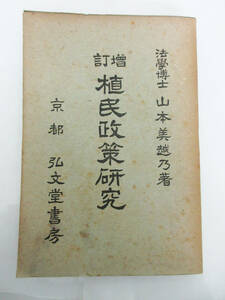 法學博士 山本美越乃著
增訂 植民政策研究
京都 弘文堂書房